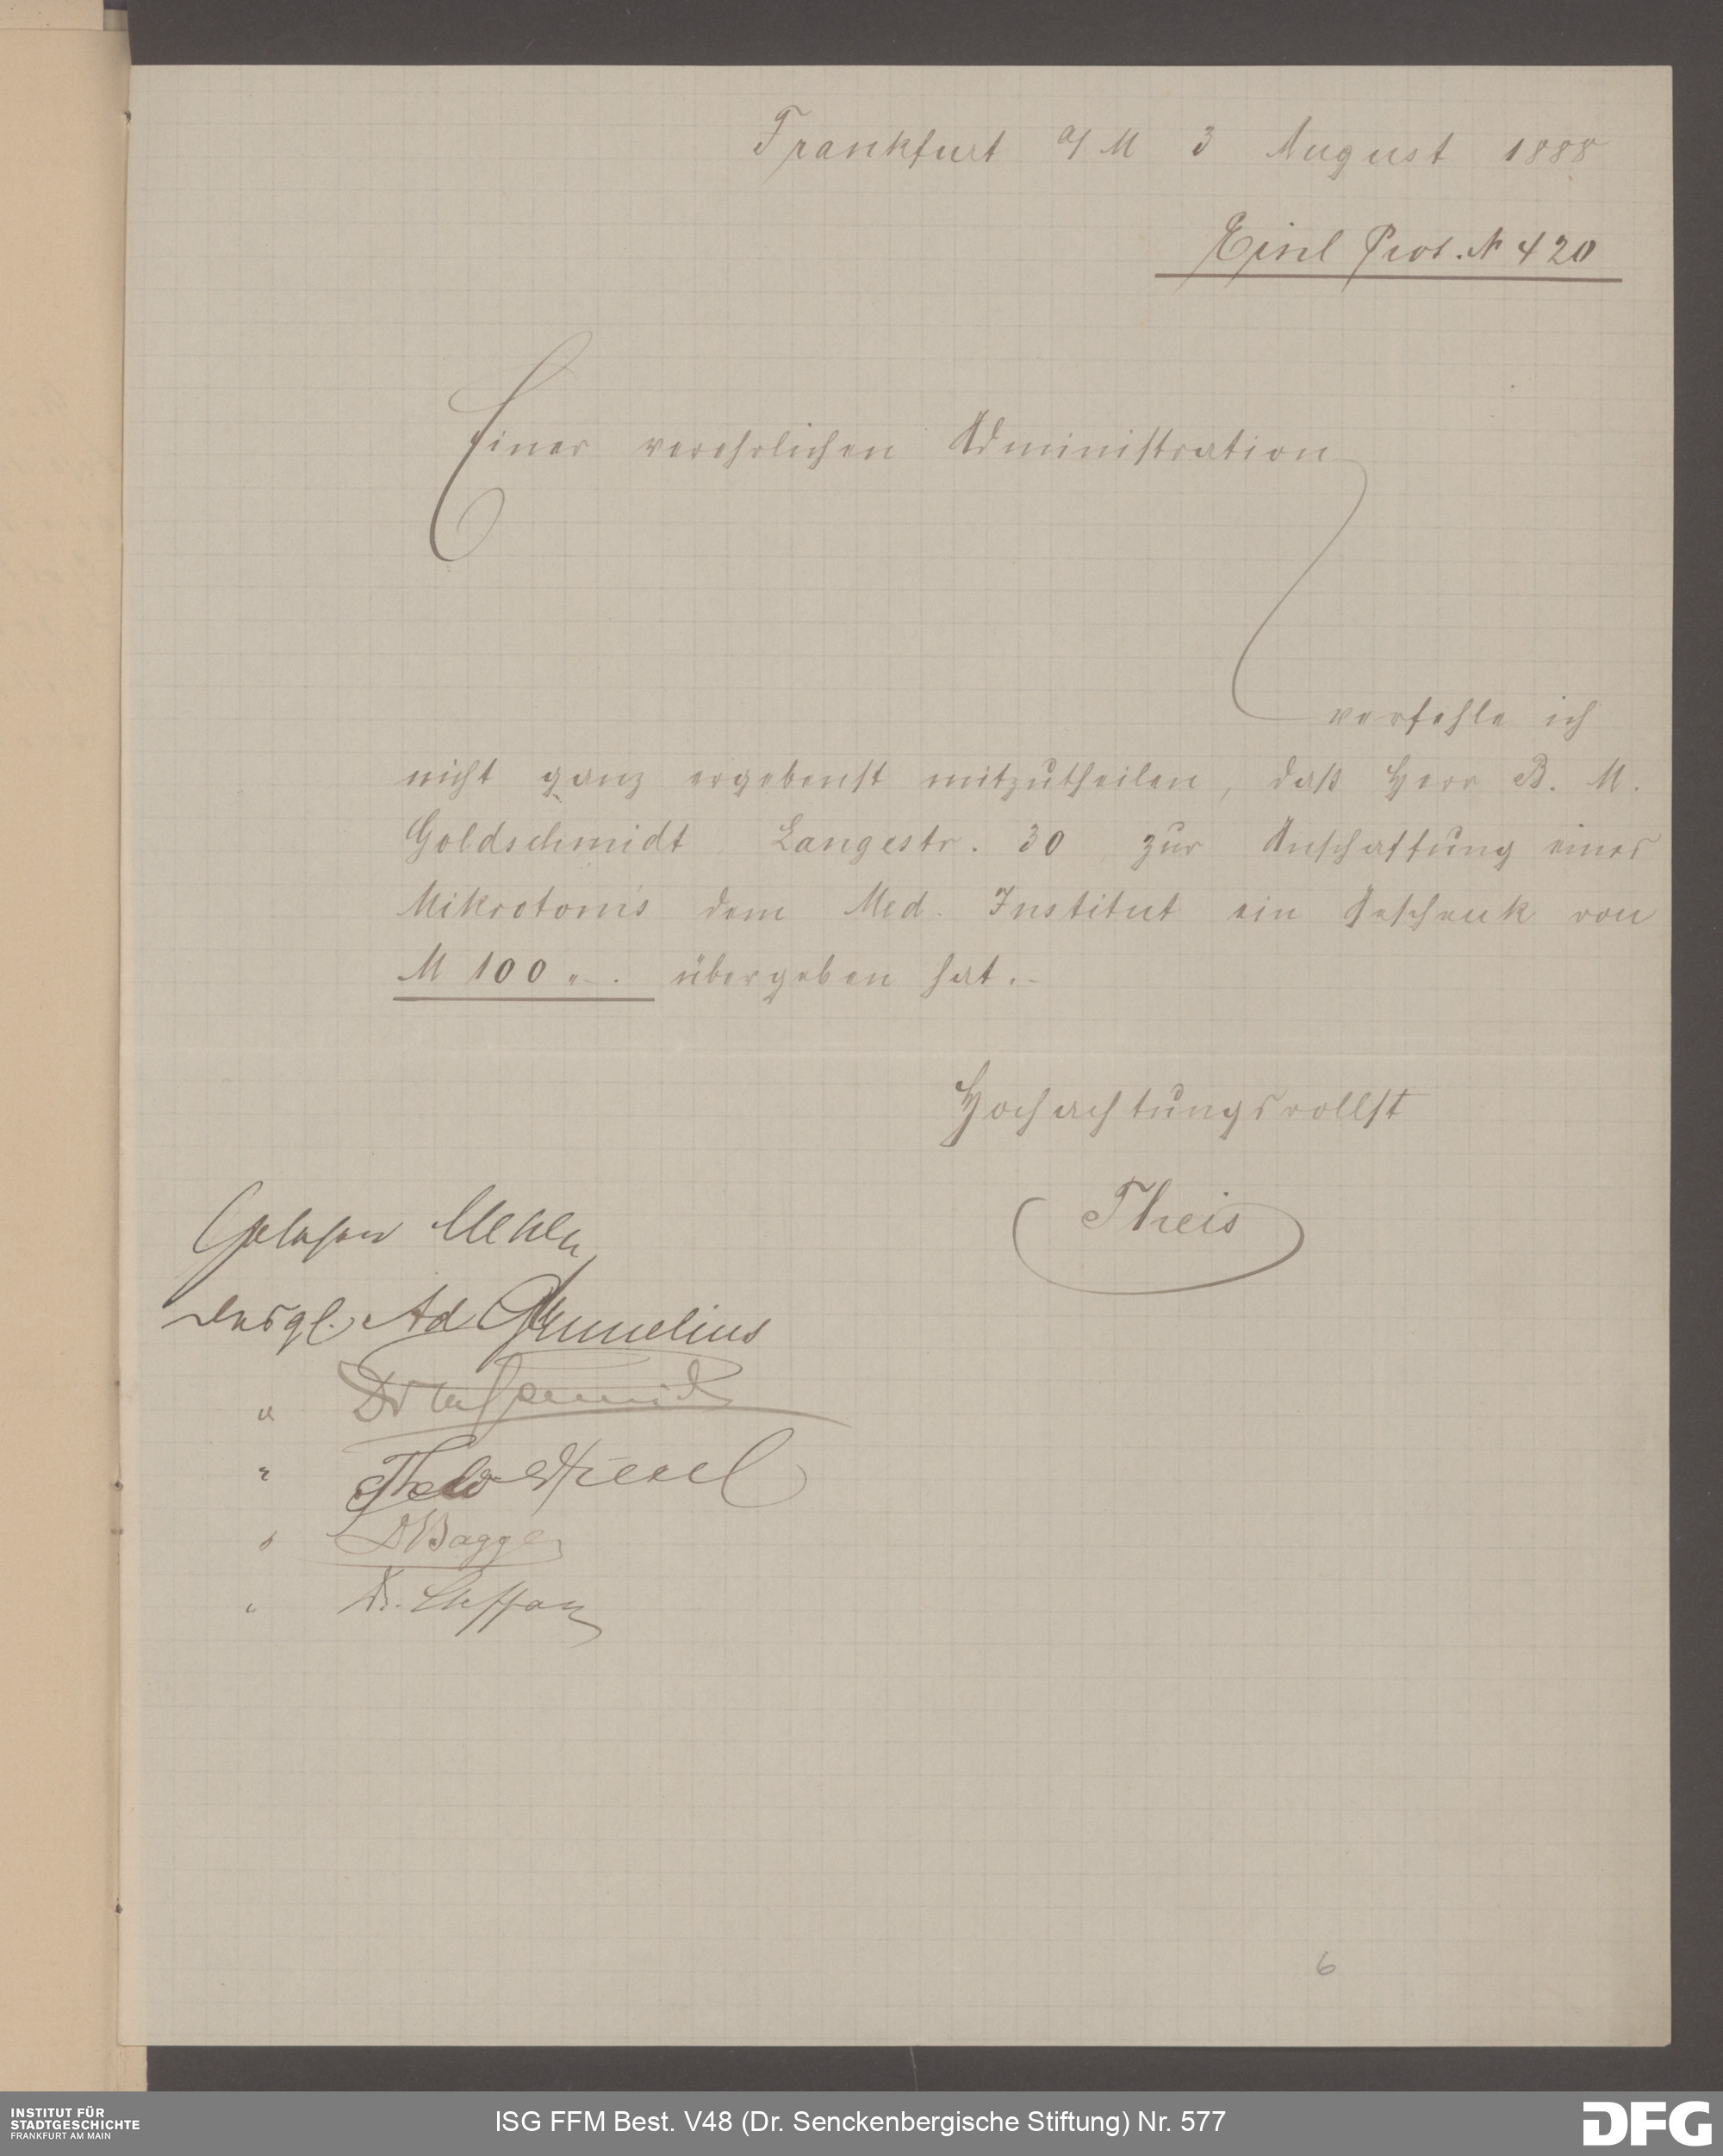 Frankfurt a/M 3 August 1888
Einl Prot. № 420
Einer verehrlichen Administration
verfehle ich
nicht ganz ergebenst mitzutheilen, daß Herr B. M.
Goldschmidt Langestr. 30 zur Anschaffung eines
Mikrotoms dem Med. Institut ein Geschenk von
M 100 „-. übergeben hat.-
Hochachtungsvollst
Theis
Gelesen
desgl. Ad Gmelius
" Dr
" Theod Stiebel
" Dr Bagge
" Dr. Steffan
6
INSTITUT FÜR
STADTGESCHICHTE
FRANKFURT AM MAIN
ISG FFM Best. V48 (Dr. Senckenbergische Stiftung) Nr. 577
DFG